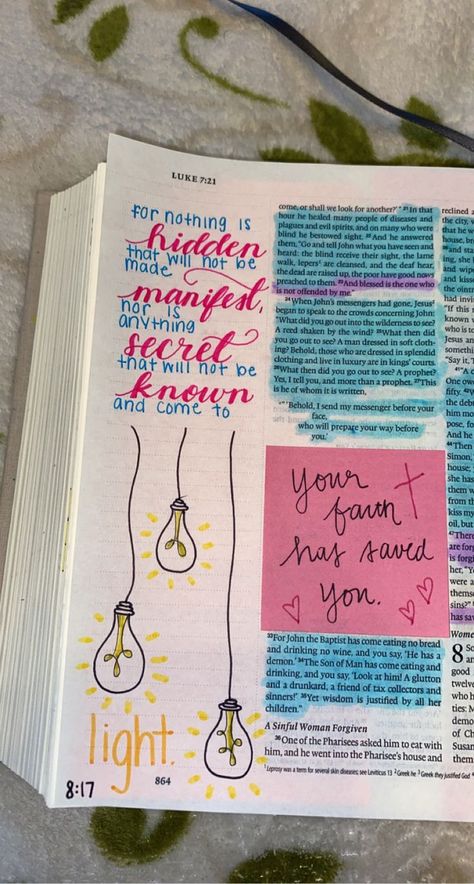 LUKE 7:21
for nothing is
hidden
that will not be
made
manifest,
nor is
anything
secret
that will not be
known
and come to
light.
8:17
864
come, or shall we look for another?'" 21In that
hour he healed many people of diseases and
plagues and evil spirits, and on many who were
blind he bestowed sight. 22And he answered
them, "Go and tell John what you have seen and
heard: the blind receive their sight, the lame
walk, lepers1 are cleansed, and the deaf hear,
the dead are raised up, the poor have good news
preached to them. 23And blessed is the one who
is not offended by me."
24When John's messengers had gone, Jesus2
began to speak to the crowds concerning John:
"What did you go out into the wilderness to see?
A reed shaken by the wind? 25What then did
you go out to see? A man dressed in soft cloth-
ing? Behold, those who are dressed in splendid
clothing and live in luxury are in kings' courts.
26What then did you go out to see? A prophet?
Yes, I tell you, and more than a prophet. 27This
is he of whom it is written,
"'Behold, I send my messenger before your
face,
who will prepare your way before
you.'
Your
faith
has saved
you.
33For John the Baptist has come eating no bread
and drinking no wine, and you say, 'He has a
demon.' 34The Son of Man has come eating and
drinking, and you say, 'Look at him! A glutton
and a drunkard, a friend of tax collectors and
sinners!' 35Yet wisdom is justified by all her
children."
A Sinful Woman Forgiven
36One of the Pharisees asked him to eat with
him, and he went into the Pharisee's house and
1Leprosy was a term for several skin diseases; see Leviticus 13 2Greek he 3Greek they justified God